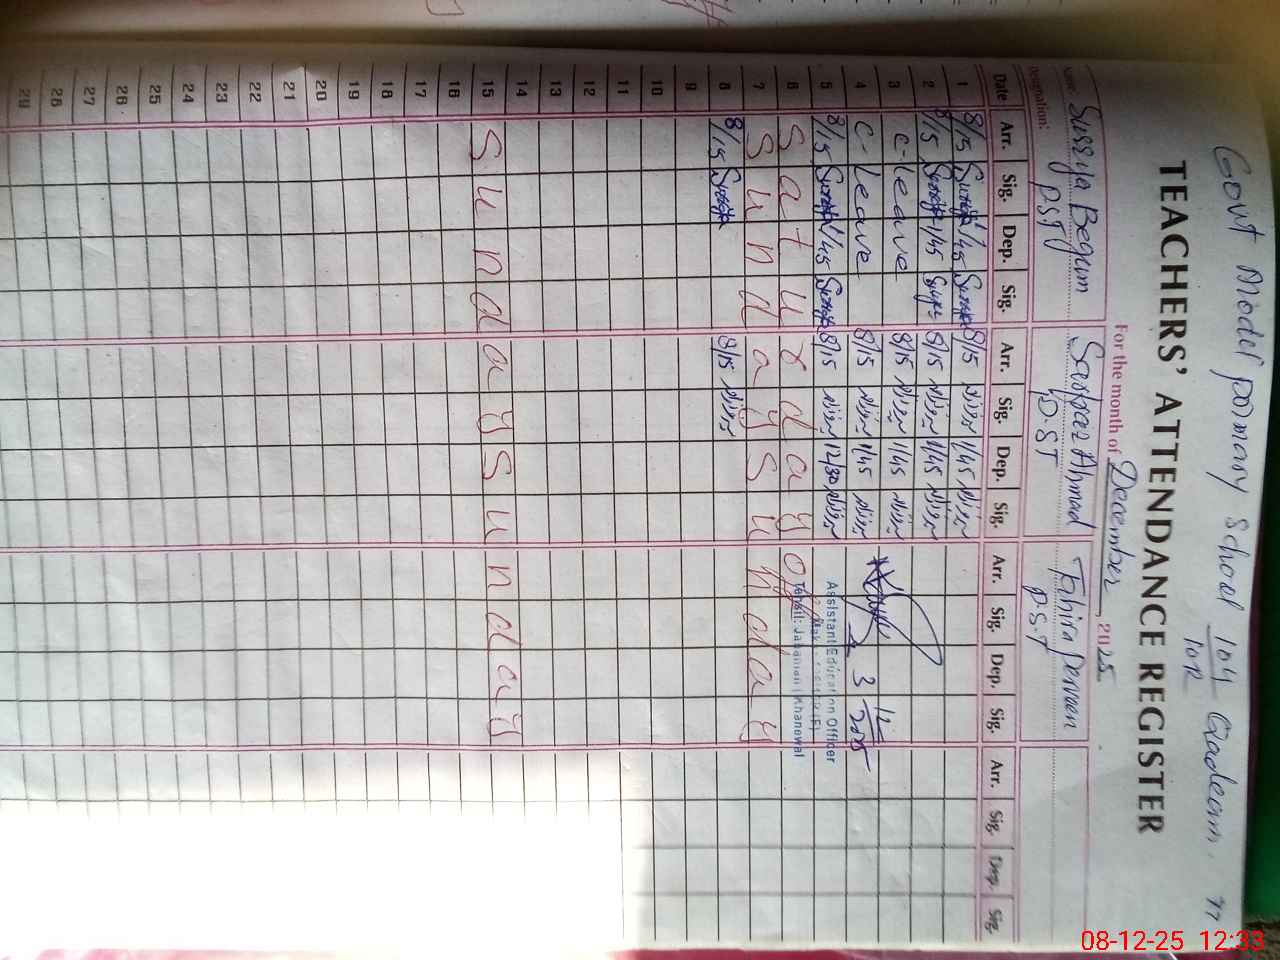 Govt Model primary School 104 Qadeem. 77
10R
TEACHERS' ATTENDANCE REGISTER
For the month of December 2025
Name: Surryia Begum Sarfraz Ahmad Tahira Perveen
Designation: PST P.ST P.S.T
Date Arr. Sig. Dep. Sig. Arr. Sig. Dep. Sig. Arr. Sig. Dep. Sig. Arr. Sig. Dep. Sig.
1 8/15 1/45 8/15 1/45
2 8/15 1/45 8/15 1/45
3 C-leave 8/15 1/45
4 C-Leave 8/15 1/45
3 12 2025
5 8/15 1/45 8/15 12/30
Assistant Education Officer
6 Saturday off
Tehsil: Jahanian (Khanewal
7 Sunday Sunday
8 8/15 8/15
9
10
11
12
13
14
15 Sunday Sunday
16
17
18
19
20
21
22
23
24
25
26
27
28
29
08-12-25 12:33